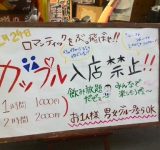 月24日
ロマンティックをぶっ飛ばせ!!
カップル入店禁止!!
1時間 1000円
2時間 2000円
飲み放題
みんなで
楽しもうぜ
お1人様 男女グループならOK